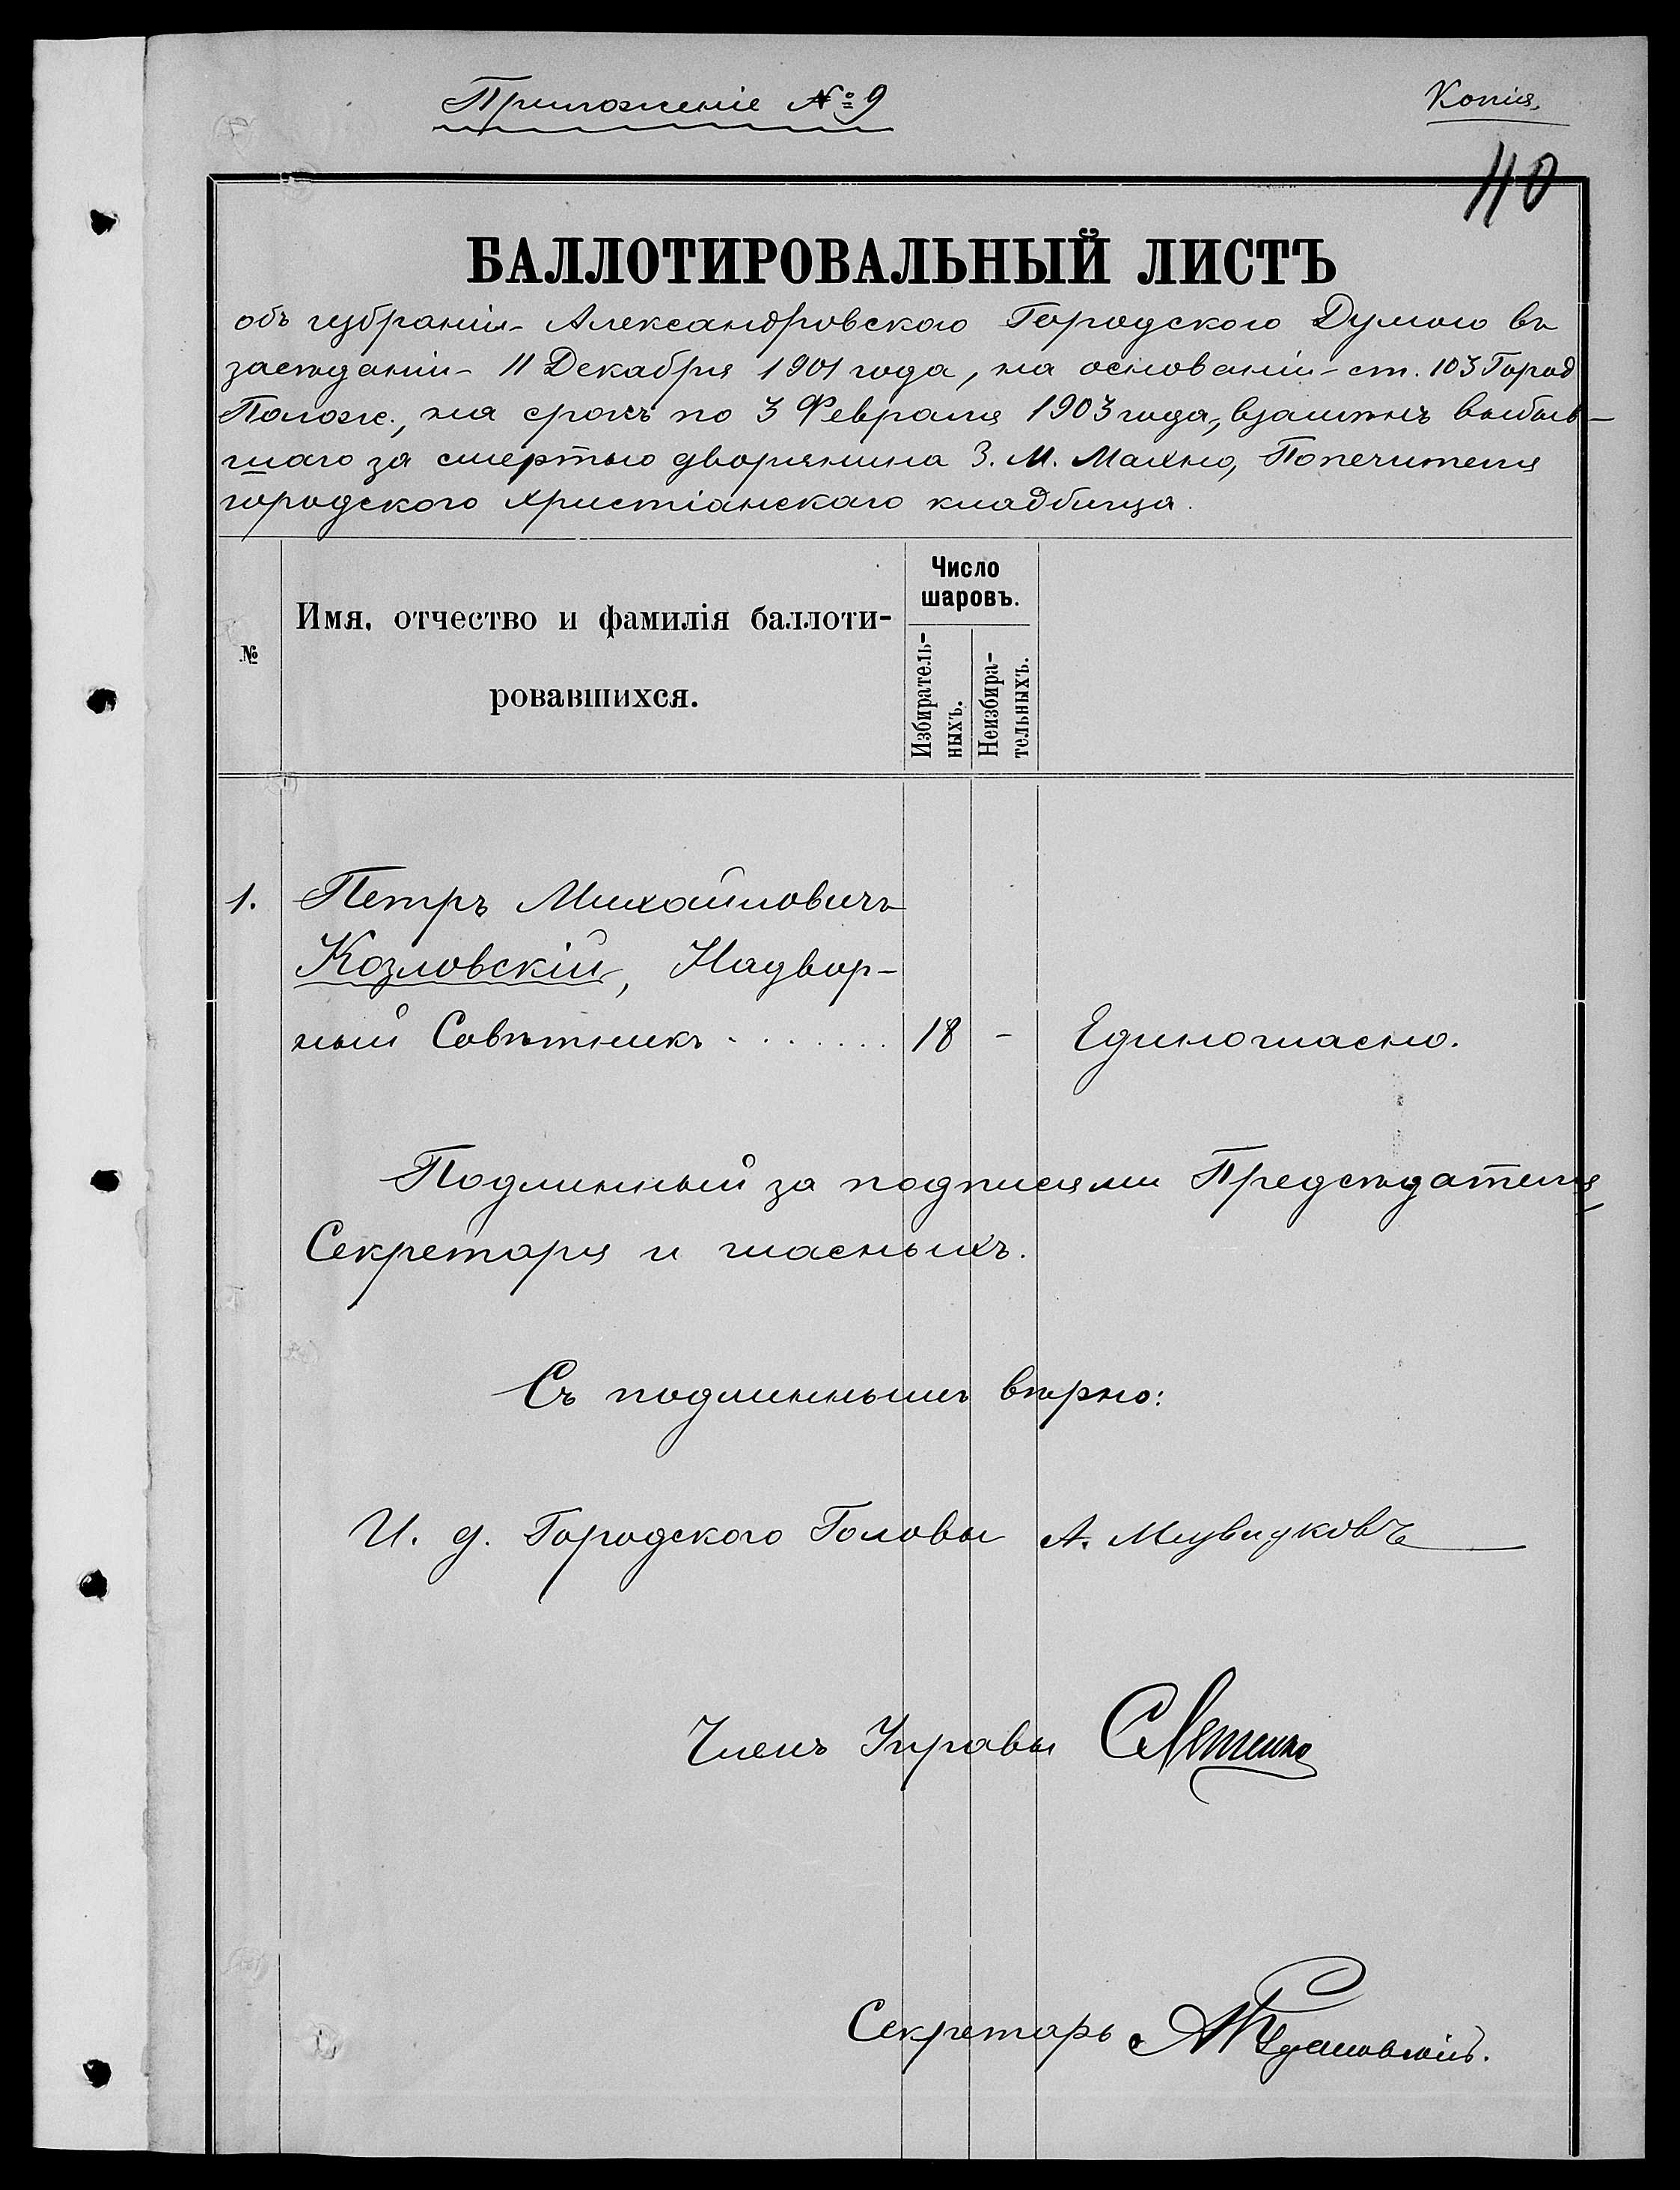 Приложеніе № 9
Копія.
110
БАЛЛОТИРОВАЛЬНЫЙ ЛИСТЪ
объ избраніи Александровскою Городскою Думою въ
засѣданіи 11 Декабря 1901 года, на основаніи ст. 103 Город
Полож., на срокъ по 3 Февраля 1903 года, взамѣнъ выбыв-
шаго за смертью дворянина З. М. Махно, Попечителя
городского христіанскаго кладбища.
№
Имя, отчество и фамилія баллоти-
ровавшихся.
Число
шаровъ.
Избиратель-
ныхъ.
Неизбира-
тельныхъ.
1. Петръ Михайловичъ
Козловскій, Надвор-
ный Совѣтникъ ........ 18 - Единогласно.
Подлинный за подписями Предсѣдателя,
Секретаря и гласныхъ.
Съ подлиннымъ вѣрно:
И. д. Городского Головы А.
Членъ Управы
Секретарь